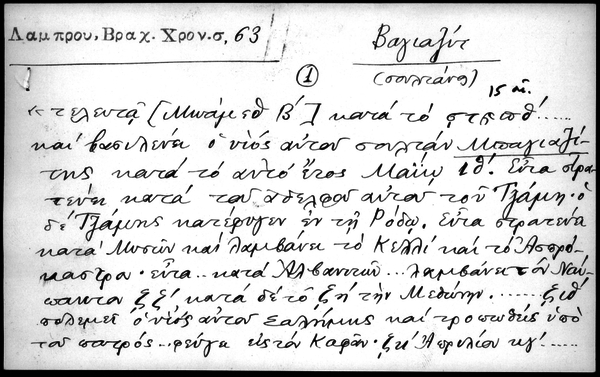 Λαμπρου, Βραχ. Χρον. σ, 63
Βαγιαζήτ
(σουλτάνος)
①
15 αἰ.
« τελευτᾷ [Μωάμεθ Β΄] κατά τό ϛϡϟθ΄......
καί βασιλεύει ὁ υἱός αὐτοῦ σουλτάν Μπαγιαζί-
της κατά τό αὐτό ἔτος Μαΐῳ ιθ΄. Εἶτα στρα-
τεύει κατά τοῦ ἀδελφοῦ αὐτοῦ τοῦ Τζάμη· ὁ
δέ Τζάμης κατέφυγεν ἐν τῇ Ρόδῳ. Εἶτα στρατεύει
κατά Μυσῶν καί λαμβάνει τό Κελλί καί τό Ἀσπρό-
καστρο. εἶτα.. κατά Ἀλβανιτῶν... λαμβάνει τόν Ναύ-
πακτον ζζ΄ κατά δέ τό ζη΄ τήν Μεθώνην. ....... ζιθ΄
πολεμεῖ ὁ υἱός αὐτοῦ Σαλήμης καί τροπωθείς ὑπό
τοῦ πατρός.. φεύγει εἰς τόν Καφᾶν. ζκ΄ Ἀπριλίου κγ΄.....